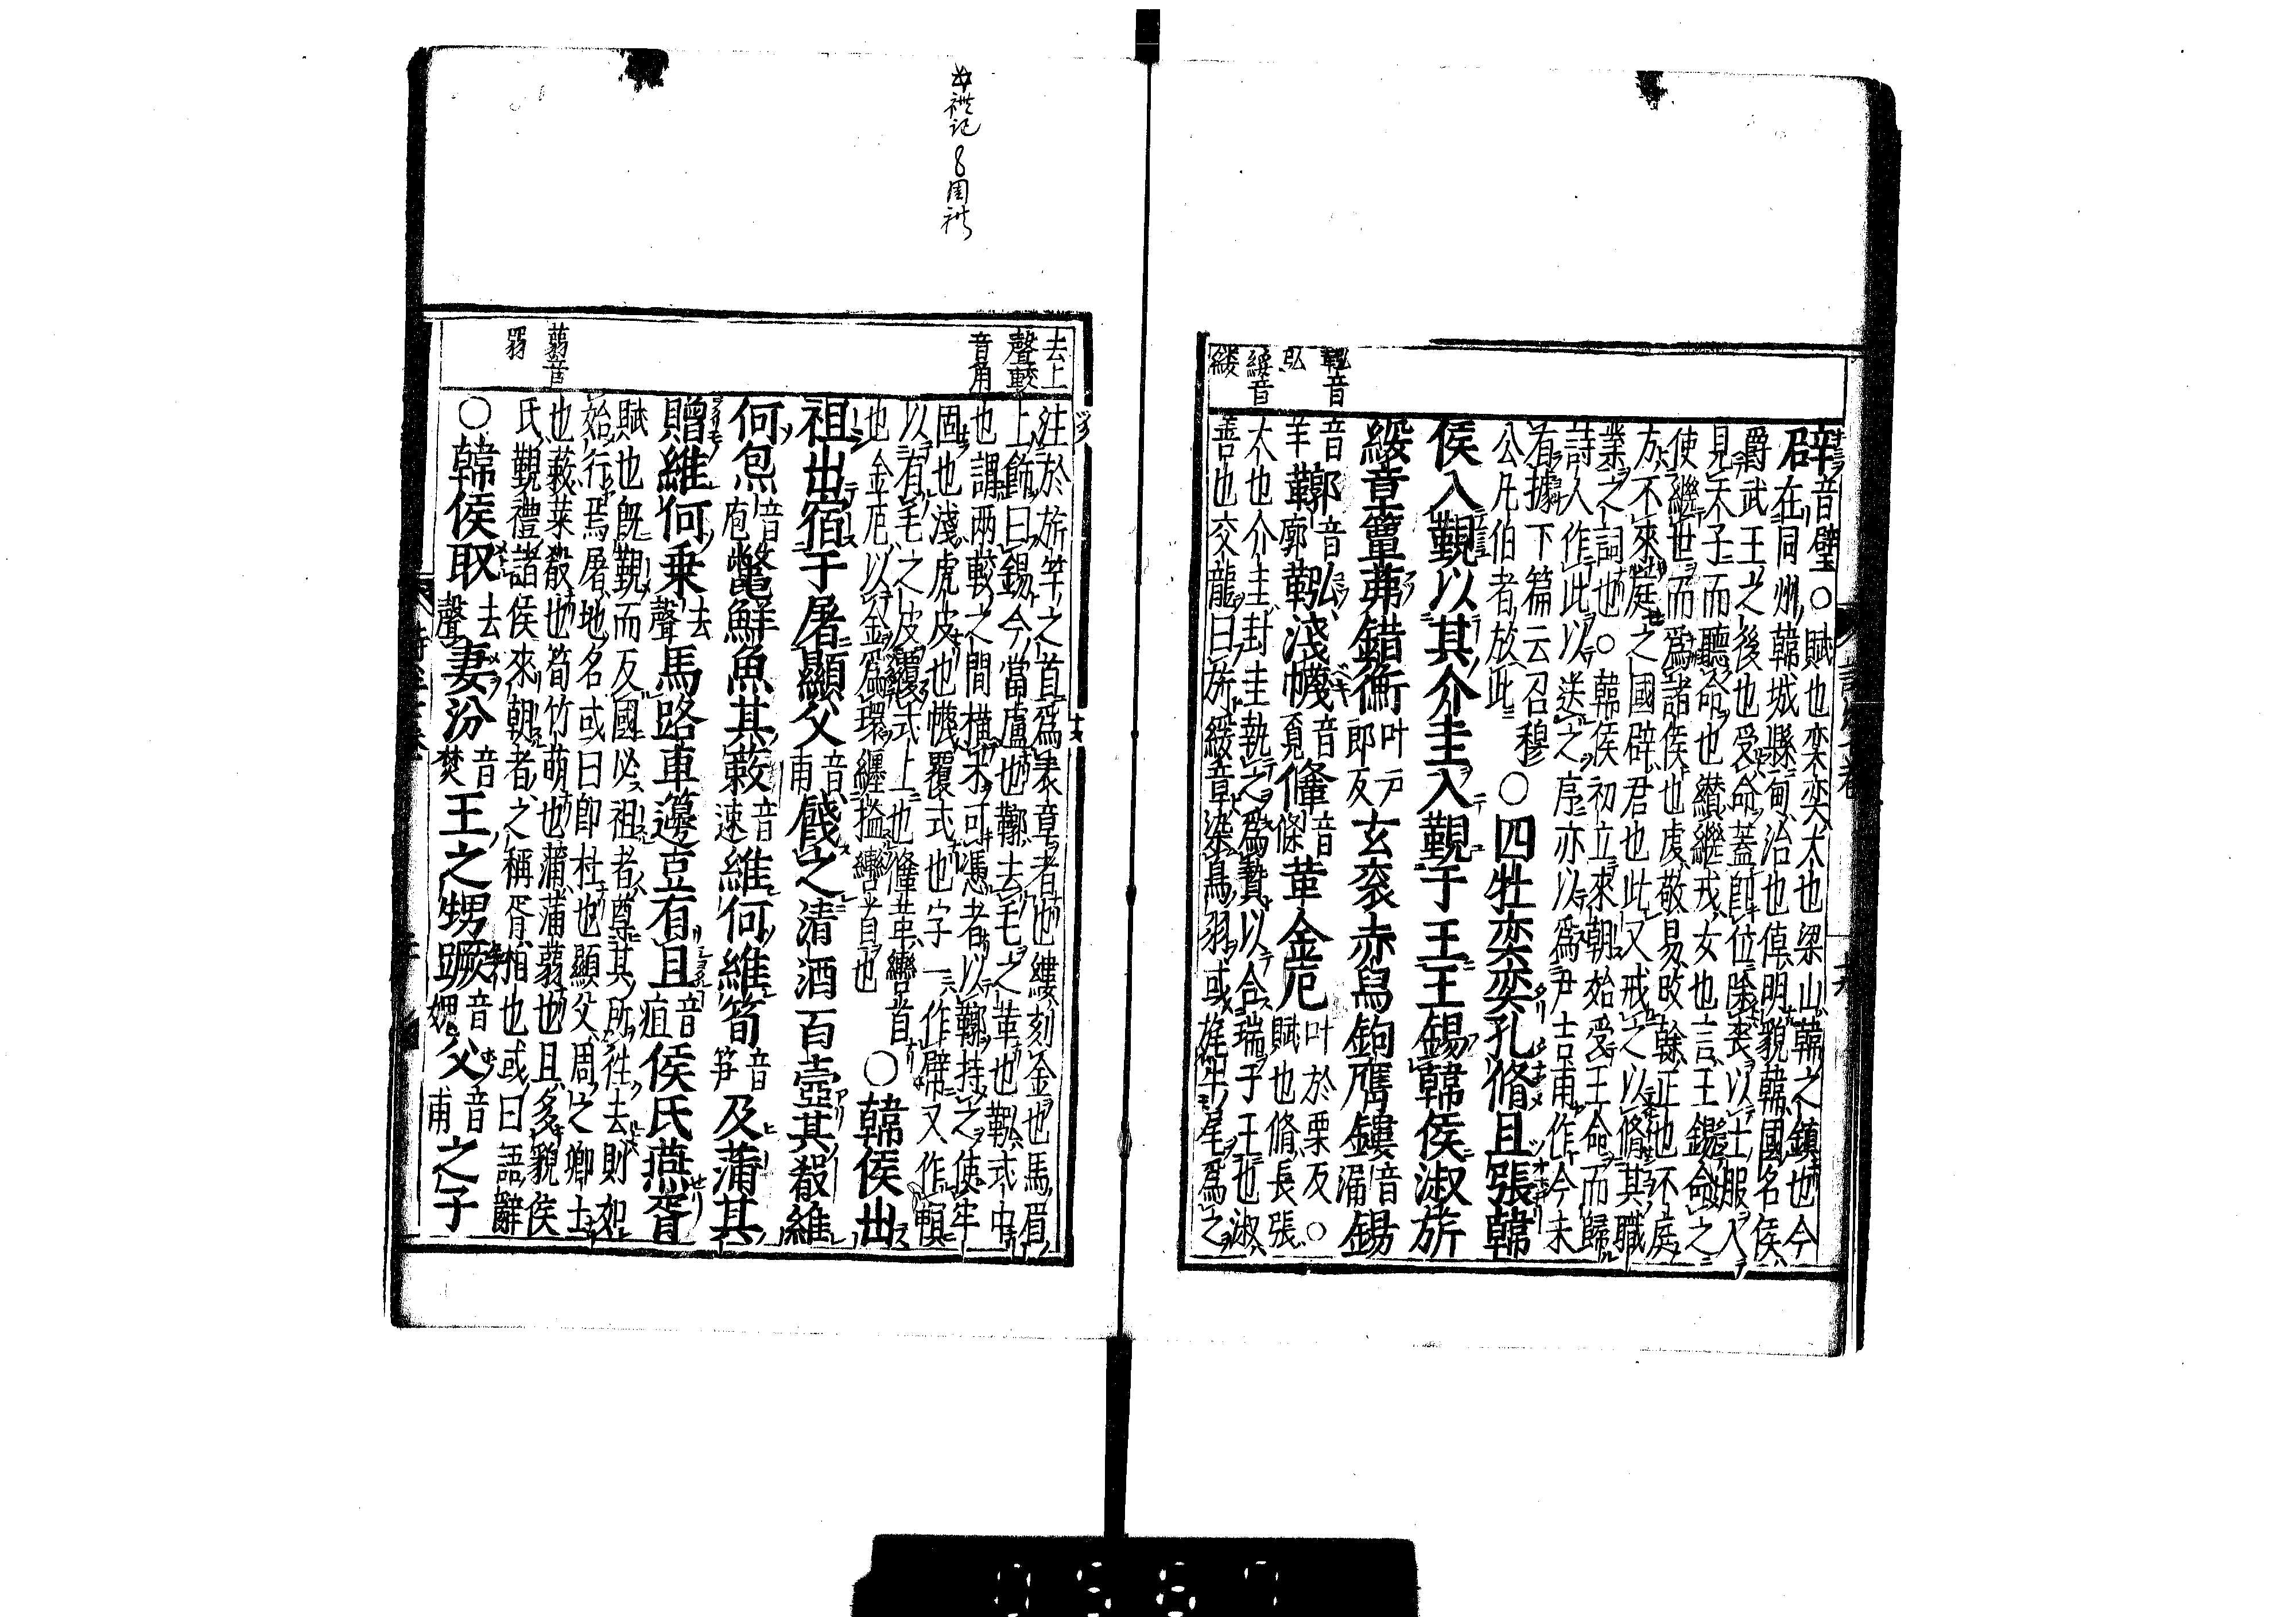 辟音璧○賦也奕奕大也梁山韓之鎮也今
在同州韓城縣甸治也倬明貌韓國名侯
爵武王之後也受命蓋即位除喪以士服入
見天子而聽命也纘繼戎女也言王錫命之
使繼世而爲諸侯也虔敬易改榦正也不庭
方不來庭之國辟君也此又戒之以脩其職
業之詞也○韓侯初立來朝始受王命而歸
詩人作此以送之序亦以爲尹吉甫作今未
有據下篇云召穆
公凡伯者放此
○四牡奕奕孔脩且張韓
侯入覲以其介圭入覲于王王錫韓侯淑旂
綏章簟茀錯衡叶戸郎反玄衮赤舄鉤膺鏤音漏錫
音羊鞹音廓鞃淺幭音覓鞗音條革金厄叶於栗反○
賦也脩長張
大也介圭封圭執之爲贄以合瑞于王也淑
善也交龍曰旂綏章染鳥羽或旄牛尾爲之
鞃音
弘
綏音
緌
注於旂竿之首爲表章者也鏤刻金也馬眉
上飾曰錫今當盧也鞹去毛之革也鞃式中
也謂兩較之間橫木可憑者以鞹持之使牢
固也淺虎皮也幭覆式也字一作幦又作幎
以有毛之皮覆式上也鞗革轡首
也金厄以金爲環纏搤轡首也
○韓侯出
祖出宿于屠顯父音甫餞之清酒百壺其殽維
何炰音庖鼈鮮魚其蔌音速維何維筍音笋及蒲其
贈維何乗去聲馬路車籩豆有且音疽侯氏燕胥
賦也既覲而反國必祖者尊其所往去則如
始行焉屠地名或曰卽杜也顯父周之卿士
也蔌菜殽也筍竹萌也蒲蒲蒻也且多貌侯
氏覲禮諸侯來朝者之稱胥相也或曰語辭
○韓侯取去聲妻汾音焚王之甥蹶音媿父音甫之子
去上
聲較
音角
蒻音
弱
周礼